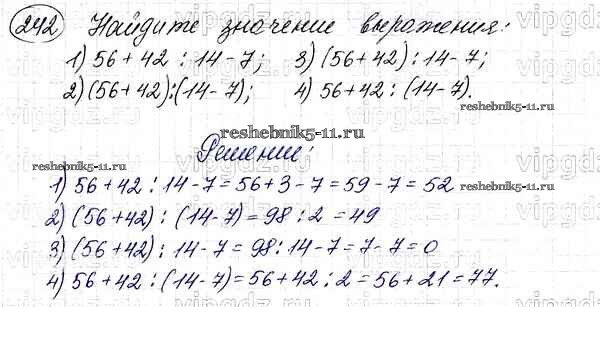 242 Найдите значение выражения:
1) 56 + 42 : 14 - 7; 3) (56 + 42) : 14 - 7;
2) (56 + 42) : (14 - 7); 4) 56 + 42 : (14 - 7).
reshebnik5-11.ru
Решение:
1) 56 + 42 : 14 - 7 = 56 + 3 - 7 = 59 - 7 = 52
2) (56 + 42) : (14 - 7) = 98 : 2 = 49
3) (56 + 42) : 14 - 7 = 98 : 14 - 7 = 7 - 7 = 0
4) 56 + 42 : (14 - 7) = 56 + 42 : 2 = 56 + 21 = 77.
reshebnik5-11.ru
reshebnik5-11.ru
reshebnik5-11.ru